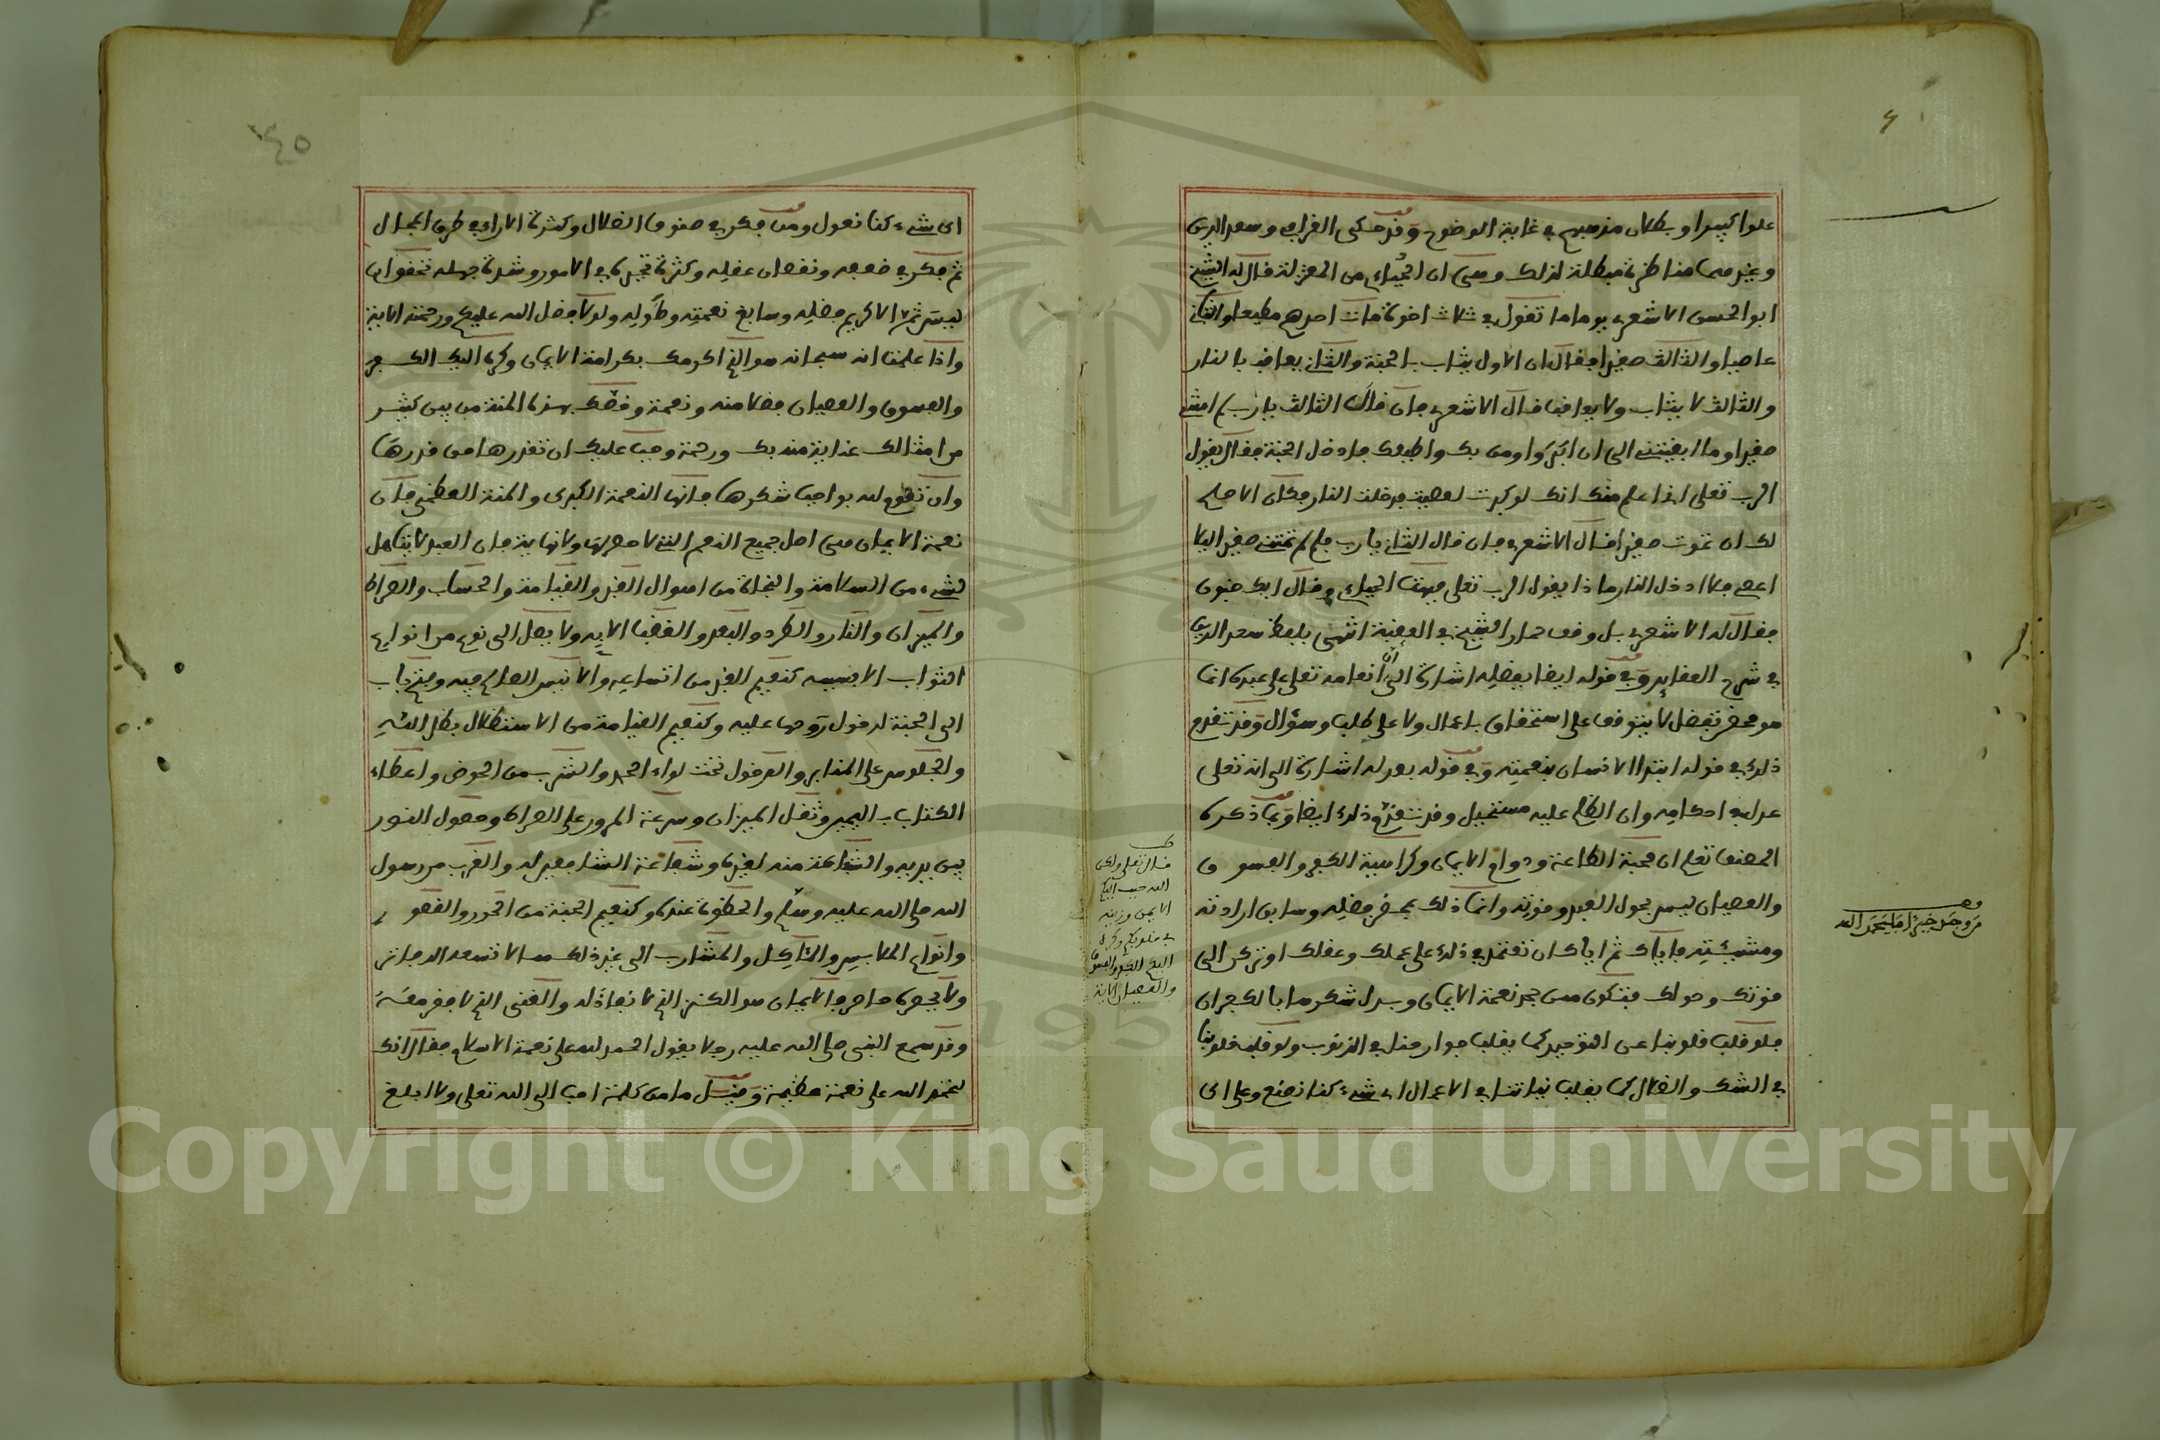 علوا كبيرا وبطلان مذهبهم في غاية الوضوح وقد حكى القرافي وسعد الدين
وغيرهما مناظرة مبطلة لذلك وهي ان الجباءي من المعتزلة قال له الشيخ
ابو الحسن الاشعري يوما ما تقول في ثلاث اخوة مات احدهم مطيعا والثاني
عاصيا والثالث صغيرا فقال ان الاول يثاب بالجنة والثاني يعاقب بالنار
والثالث لا يثاب ولا يعاقب قال الاشعري فان قال الثالث يا رب لم امتني
صغيرا وما ابقيتني الى ان اكبر واومن بك واطيعك فادخل الجنة فقال يقول
الرب تعلى اني اعلم منك انك لو كبرت لعصيت فدخلت النار فكان الاصلح
لك ان تموت صغيرا قال الاشعري فان قال الثاني يا رب لم لم تمتني صغيرا ليلا
اعصي فلا ادخل النار ماذا يقول الرب تعلى فبهت الجباءي وقال ابك جنون
فقال له الاشعري بل وقف حمار الشيخ في العقبة انتهى بلفظ سعد الدين
في شرح العقايد وفي قوله ايضا بفضله اشارة الى ان انعامه تعلى على عبده انما
هو محض تفضل لا يتوقف على استحقاق باعمال ولا على طلب وسؤال وقد تقدم
ذلك في قوله ابتدا الانسان بنعمته وفي قوله بعدله اشارة الى انه تعلى
عدل في احكامه وان الظلم عليه مستحيل وقد تقدم ذلك ايضا وبما ذكره
المصنف تعلم ان محبة الطاعة ودوام الايمان وكراهية الكفر والفسوق
والعصيان ليس بحول العبد وقوته وانما ذلك بمحض فضله وسابق ارادته
ومشيئته فاياك ثم اياك ان تعتمد في ذلك على عملك وعقلك او تركن الى
قوتك وحولك فتكون ممن جحد نعمة الايمان وبدل شكرها بالكفران
فلو قلب قلوبنا عن التوحيد كما يقلب جوارحنا في الذنوب ولو قلب قلوبنا
في الشك والضلال كما يقلب نياتنا في الاعمال اي شيء كنا نصنع وعلى اي
قال تعلى ولكن
الله حبب اليكم
الايمن وزينه
في قلوبكم وكره
اليكم الكفر والفسوق
والعصيان الاية
من وجد خيرا فليحمد الله
٤٥
اي شيء كنا نعول ومن فكر في صنوف الضلال وكثرة الاراء في طرق المحال
ثم فكر في ضعفه ونقصان عقله وكثرة تحيره في الامور وشدة جهله تحقق ان
ليس ثم الا كريم فضله وسابغ نعمته وطوله ولولا فضل الله عليكم ورحمته الاية
واذا علمت انه سبحانه هو الذي اكرمك بكرامة الايمان وكره اليك الكفر
والفسوق والعصيان فضلا منه ونعمة وخصك بهذه المنة من بين كثير
من امثالك عناية منه بك ورحمة وجب عليك ان تقدرها من قدرها
وان تقوم لله بواجب شكرها فانها النعمة الكبرى والمنة العظمى فان
نعمة الايمان هي اصل جميع النعم التي لا حصر لها ولا نهاية فان العبد لا يتاهل
لشيء من السلامة والنجاة من اهوال القبر والقيامة والحساب والصراط
والميزان والنار والطرد والبعد والغضب الا به ولا يصل الى نوع من انواع
الثواب الا بسببه كنعيم القبر من اتساعه والانيس الصالح فيه وفتح باب
الى الجنة لدخول روحها عليه وكنعيم القيامة من الاستظلال بظل الله
والجلوس على المنابر والدخول تحت لواء الحمد والشرب من الحوض واعطاء
الكتاب باليمين وثقل الميزان وسرعة المرور على الصراط وحصول النور
بين يديه والشفاعة منه لغيره وشفاعة الشافعين له والقرب من رسول
الله صلى الله عليه وسلم والحظوة عنده وكنعيم الجنة من الحور والقصور
وانواع الملابس والمآكل والمشارب الى غير ذلك مما لا تسعه الدفاتر
ولا يحصره حاصر فالايمان هو الكنز الذي لا نفاد له والغنى الذي لا فقر معه
وقد سمع النبي صلى الله عليه رجلا يقول الحمد لله على نعمة الاسلام فقال انك
لتحمد الله على نعمة عظيمة وقيل ما من كلمة احب الى الله تعلى ولا ابلغ
Copyright © King Saud University